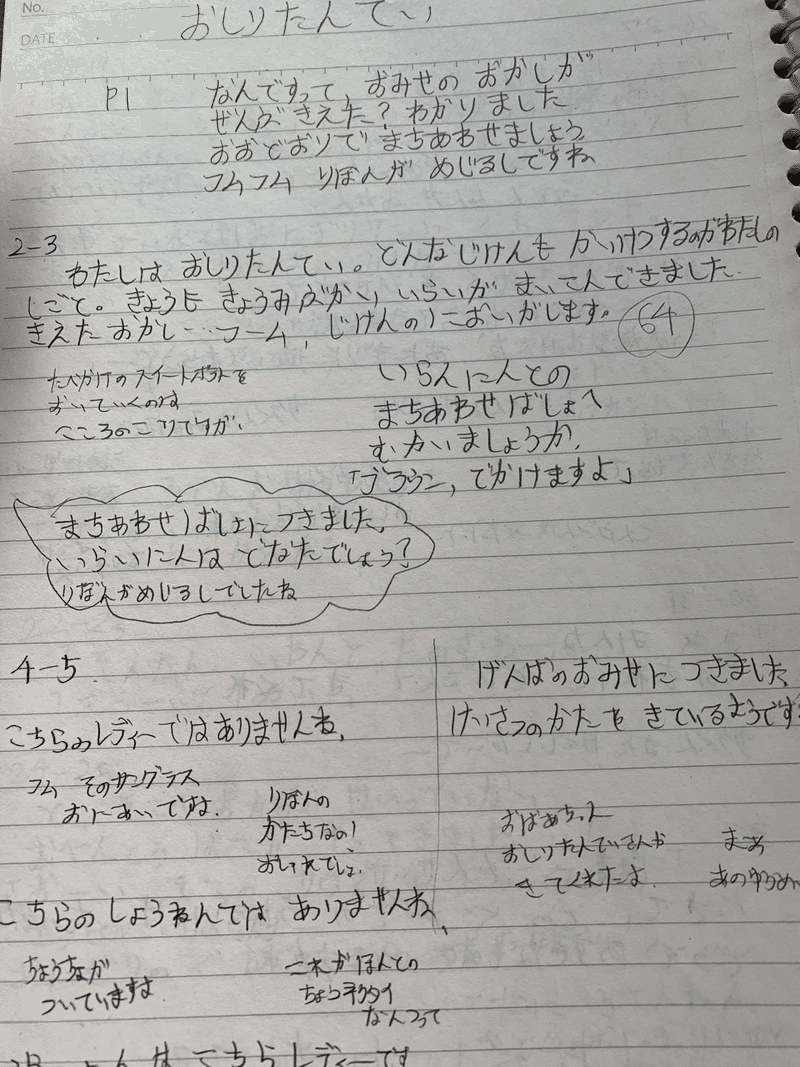 No.
DATE
おしりたんてい
P1
なんですって、おみせの おかしが
ぜんぶ きえた? わかりました
おおどおりで まちあわせましょう
フムフム りぼんが めじるしですね
2-3
わたしは おしりたんてい。どんなじけんも かいけつするのがわたしの
しごと。きょうも きょうみぶかい いらいが まいこんできました.
きえた おかし…フーム, じけんのにおいがします。
64
たべかけの スイートポテトを
おいていくのは
こころのこりですが、
いらいにんとの
まちあわせばしょへ
むかいましょうか.
「ブラウン, でかけますよ」
まちあわせばしょにつきました。
いらいにんは どなたでしょう?
りぼんがめじるしでしたね
4-5
こちらのレディーではありませんね.
フム そのサングラス
おにあいですね.
りぼんの
かたちなの!
おしゃれでしょ.
こちらの しょうねんでは ありませんね、
ちょうちょが
ついていますよ
これがほんとの
ちょうネクタイ
なんつって
げんばのおみせに つきました
けいさつのかたも きているようです
おばあちゃん
おしりたんていさんが
きてくれたよ.
まあ
あのゆうめい
こちらレディーです